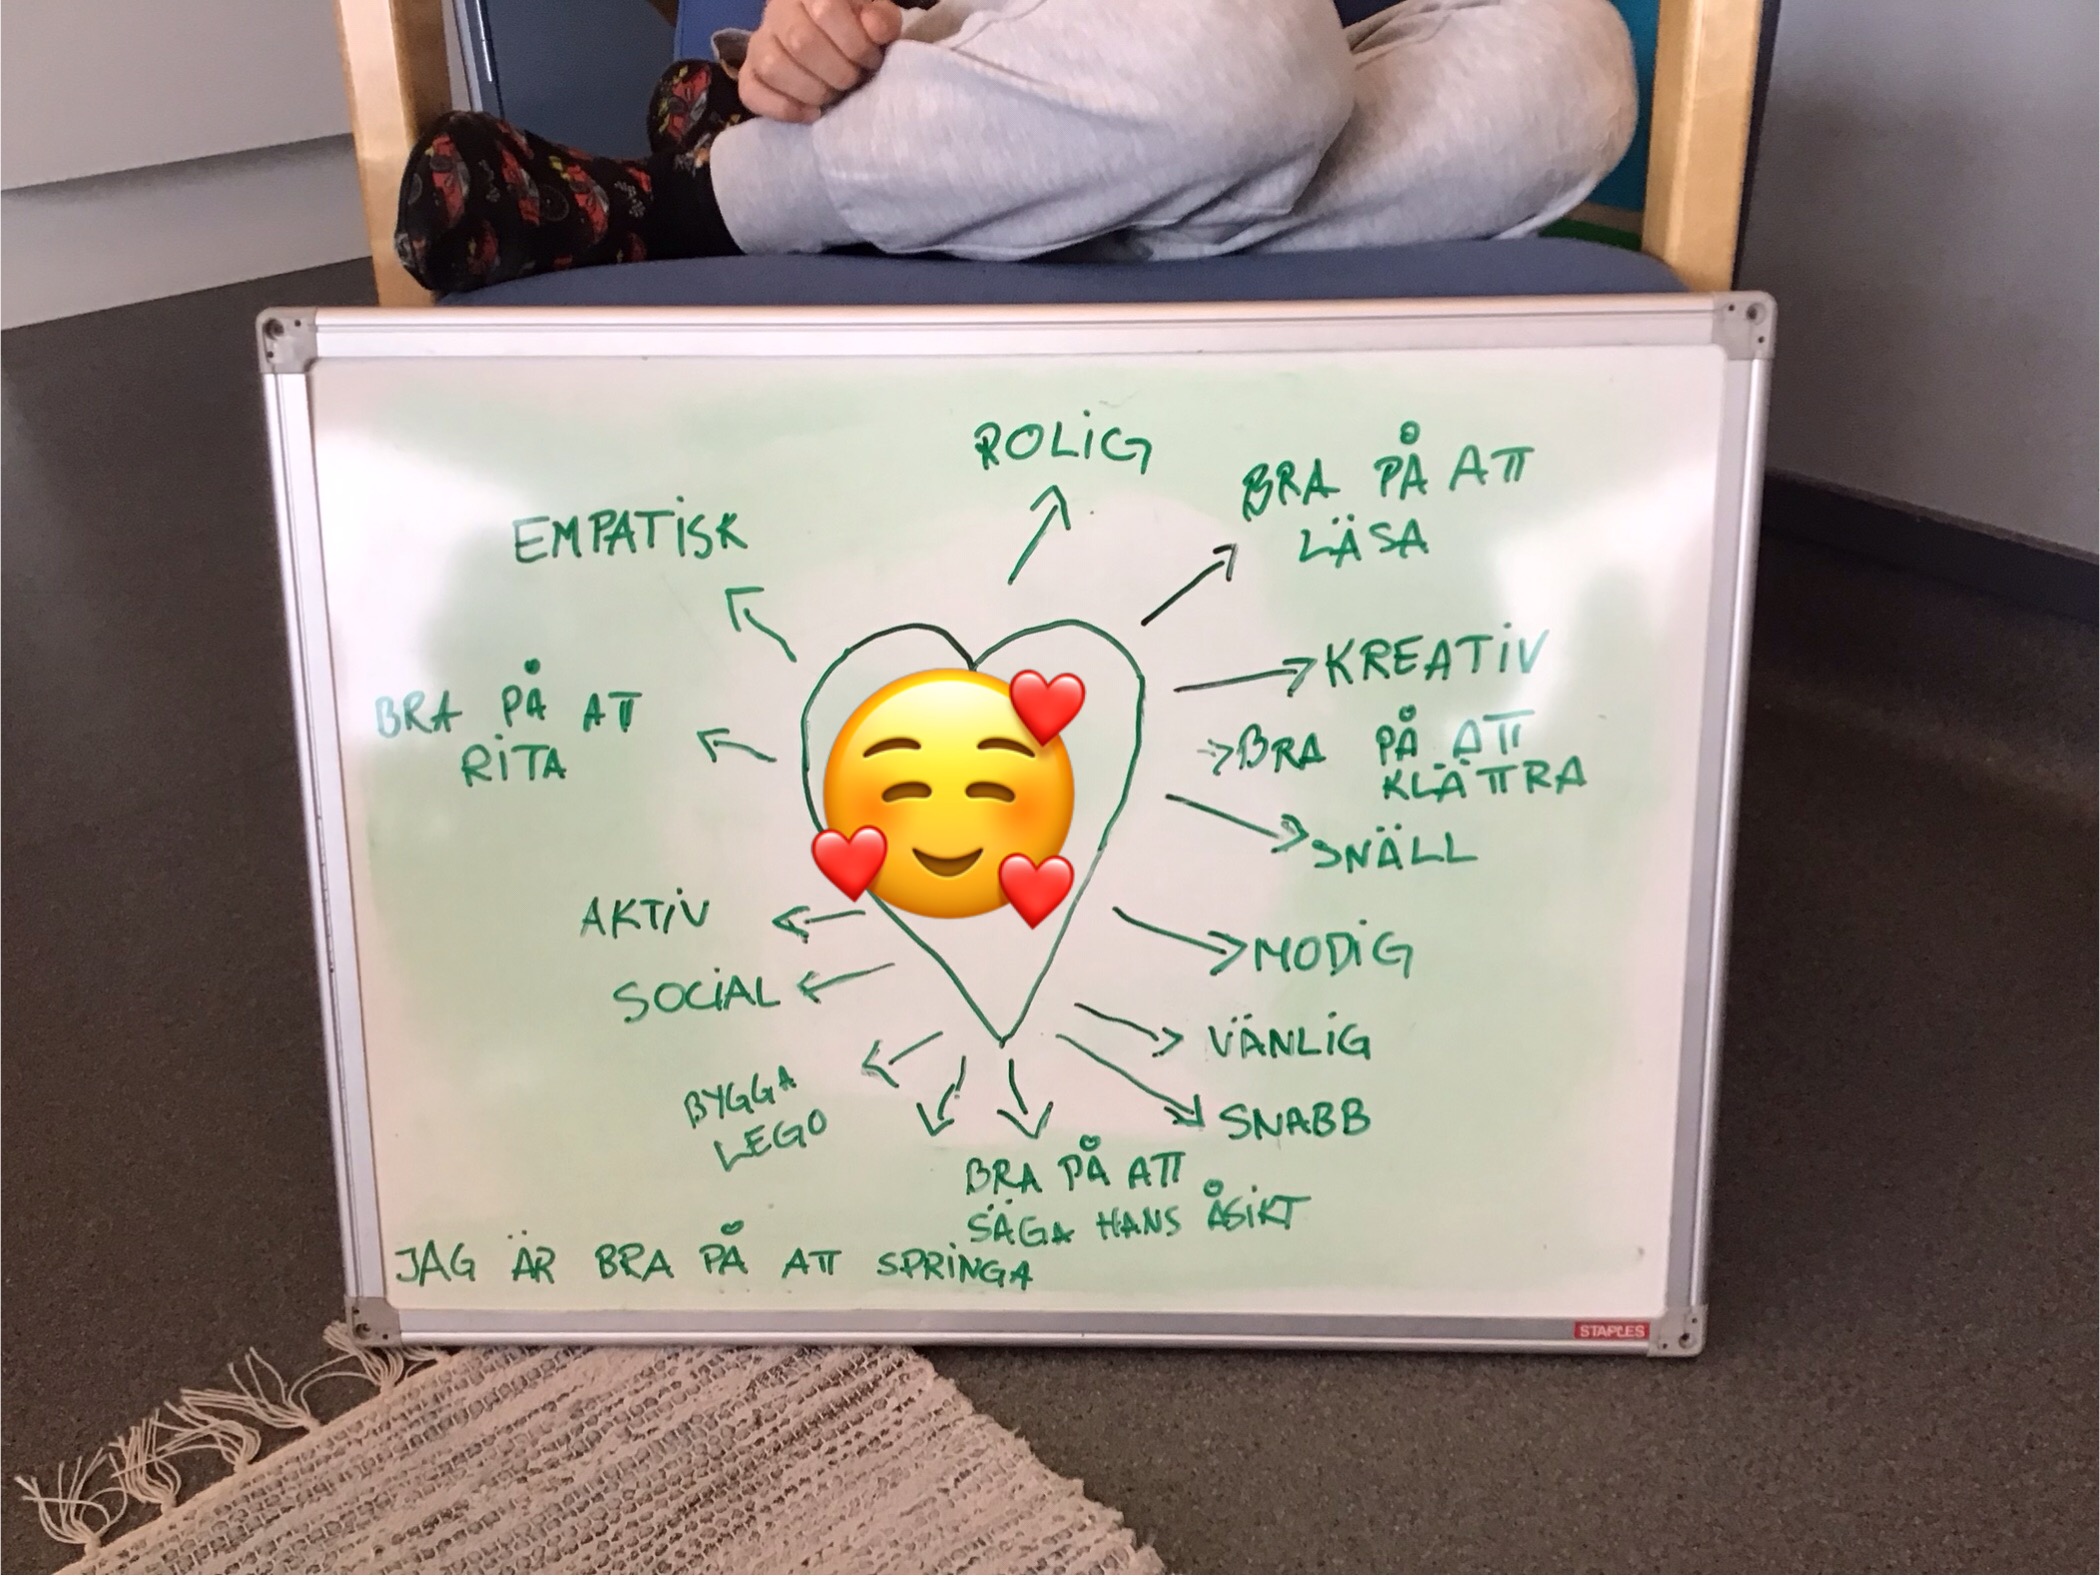 ROLIG
BRA PÅ ATT
LÄSA
EMPATISK
KREATIV
BRA PÅ ATT
RITA
BRA PÅ ATT
KLÄTTRA
SNÄLL
AKTIV
MODIG
SOCIAL
VÄNLIG
BYGGA
LEGO
SNABB
BRA PÅ ATT
SÄGA HANS ÅSIKT
JAG ÄR BRA PÅ ATT SPRINGA
STAPLES